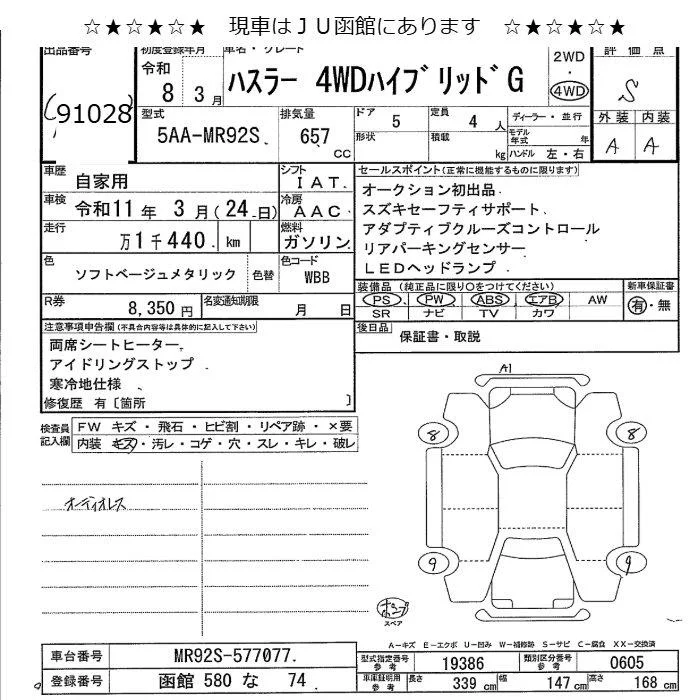 ☆★☆★☆★ 現車はＪＵ函館にあります ☆★☆★☆★
出品番号 初度登録年月 車名・グレード 2WD・4WD 評価点
91028 令和 8 3月 ハスラー 4WDハイブリッドG S
型式 5AA-MR92S 排気量 657 CC
ドア 5 定員 4人 ディーラー・並行
形状 積載 kg モデル年式 年 ハンドル 左・右
外装 内装
A A
車歴 自家用 シフト IAT
車検 令和11年 3月(24日) 冷房 AAC
走行 万1千440 km 燃料 ガソリン
色 ソフトベージュメタリック 色替 色コード WBB
R券 8,350円 名変通知期限 月 日
セールスポイント(正常に機能するものに限ります)
オークション初出品
スズキセーフティサポート
アダプティブクルーズコントロール
リアパーキングセンサー
LEDヘッドランプ
装備品(純正品に限り○をつけてください) 新車保証書
PS PW ABS エアB AW 有・無
SR ナビ TV カワ
後日品 保証書・取説
注意事項申告欄(不具合内容等は具体的に記入して下さい)
両席シートヒーター
アイドリングストップ
寒冷地仕様
修復歴 有〔箇所 〕
検査員記入欄 FW キズ・飛石・ヒビ割・リペア跡・×要
内装 キズ・汚レ・コゲ・穴・スレ・キレ・破レ
オーディオレス
A1
8 8
9 9
ポンプ
スペア
A－キズ E－エクボ U－凹み W－補修跡 S－サビ C－腐食 XX－交換済
車台番号 MR92S-577077
登録番号 函館 580 な 74
型式指定番号 参考 19386 類別区分番号 参考 0605
車庫証明用 参考 長さ 339cm 幅 147cm 高さ 168cm